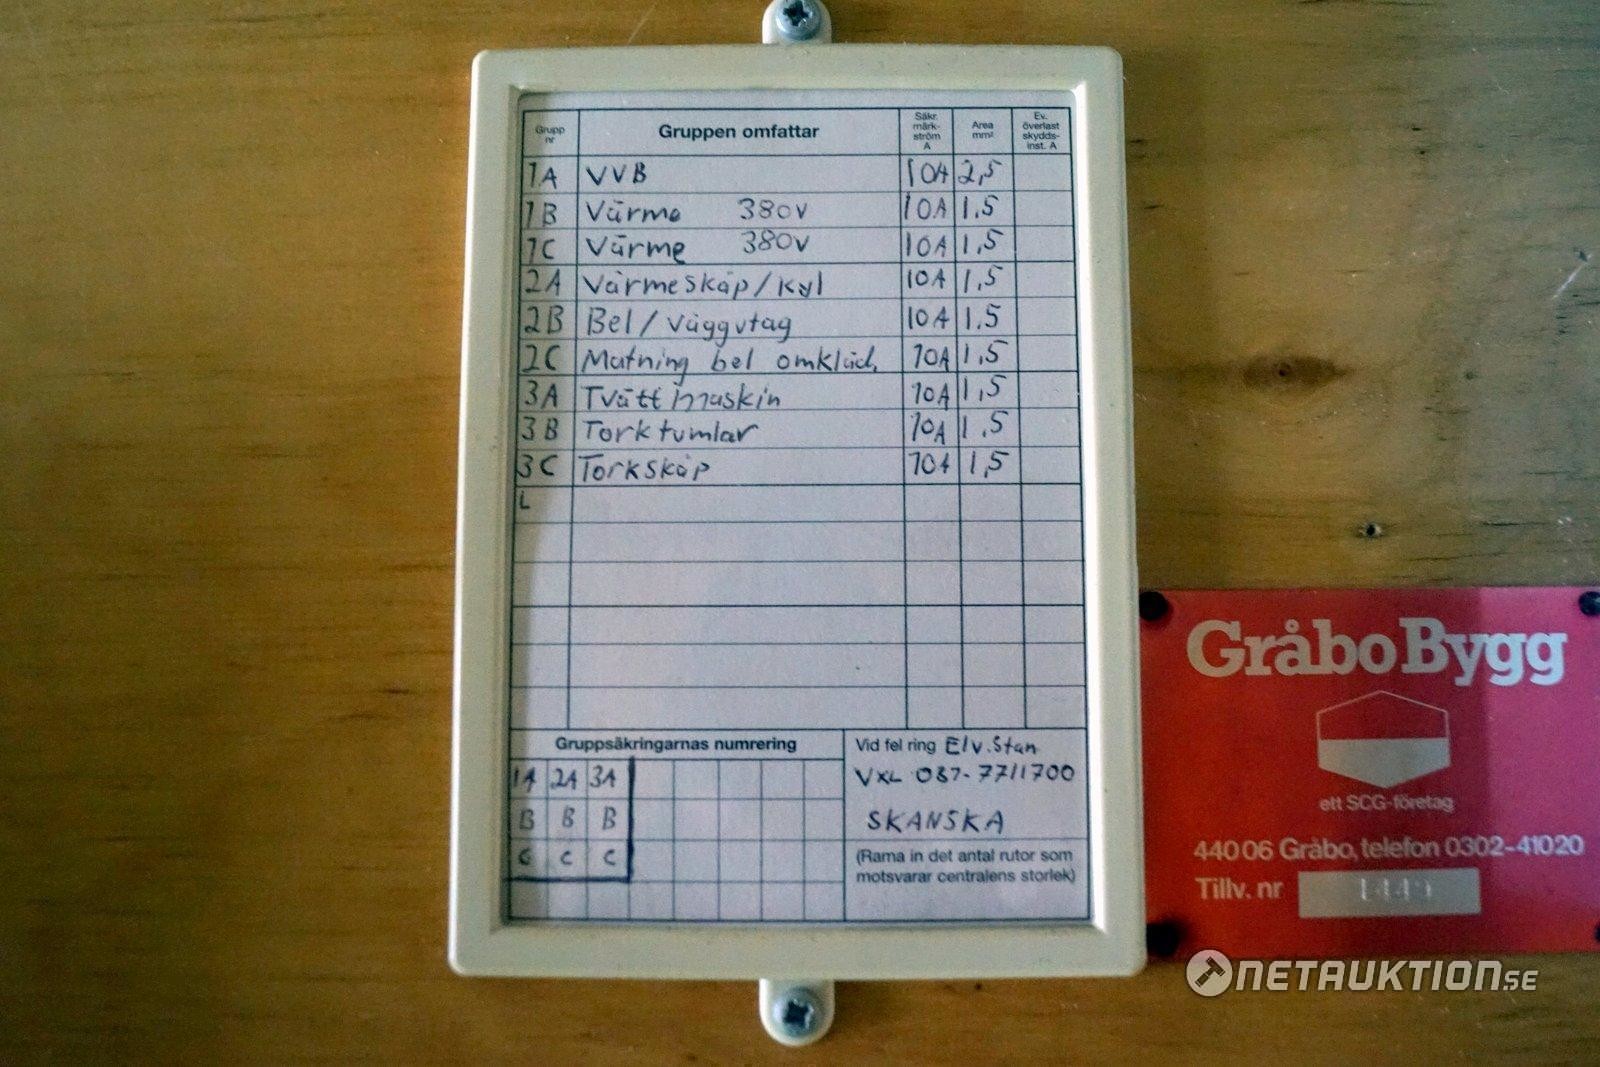 Grupp nr Gruppen omfattar Säkr. märk-ström A Area mm² Ev. överlast skydds-inst. A
1A VVB 10A 2,5
1B Värme 380V 10A 1,5
1C Värme 380V 10A 1,5
2A Värmeskåp/kyl 10A 1,5
2B Bel/vägguttag 10A 1,5
2C Matning bel omkläd. 10A 1,5
3A Tvättmaskin 10A 1,5
3B Torktumlar 10A 1,5
3C Torkskåp 10A 1,5
L
Gruppsäkringarnas numrering
1A 2A 3A
B B B
C C C
Vid fel ring Elv.Stan
VXL 031-7711700
SKANSKA
(Rama in det antal rutor som
motsvarar centralens storlek)
Gråbo Bygg
ett SCG-företag
440 06 Gråbo, telefon 0302-41020
Tillv. nr
NETAUKTION.SE